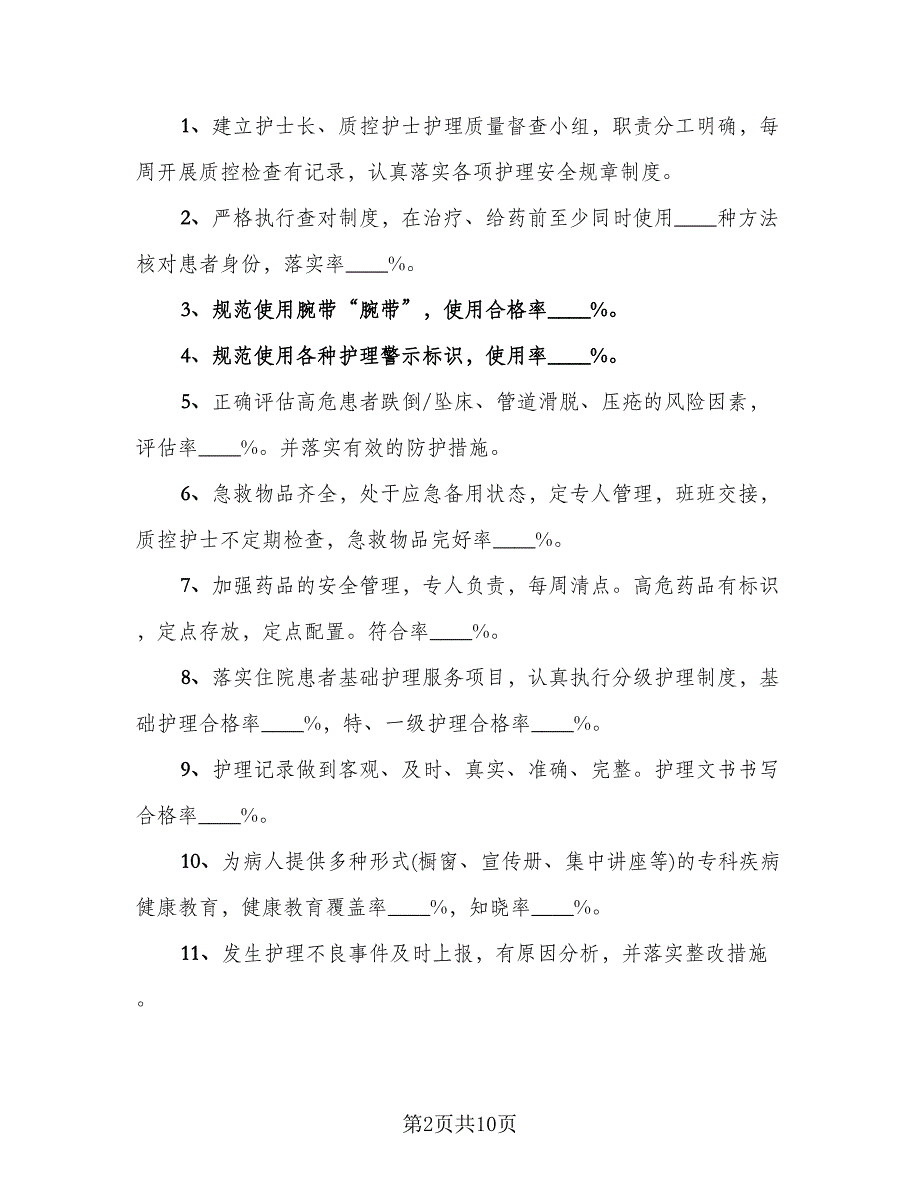 1、建立护士长、质控护士护理质量督查小组，职责分工明确，每
周开展质控检查有记录，认真落实各项护理安全规章制度。
2、严格执行查对制度，在治疗、给药前至少同时使用____种方法
核对患者身份，落实率____%。
3、规范使用腕带“腕带”，使用合格率____%。
4、规范使用各种护理警示标识，使用率____%。
5、正确评估高危患者跌倒/坠床、管道滑脱、压疮的风险因素，
评估率____%。并落实有效的防护措施。
6、急救物品齐全，处于应急备用状态，定专人管理，班班交接，
质控护士不定期检查，急救物品完好率____%。
7、加强药品的安全管理，专人负责，每周清点。高危药品有标识
，定点存放，定点配置。符合率____%。
8、落实住院患者基础护理服务项目，认真执行分级护理制度，基
础护理合格率____%，特、一级护理合格率____%。
9、护理记录做到客观、及时、真实、准确、完整。护理文书书写
合格率____%。
10、为病人提供多种形式(橱窗、宣传册、集中讲座等)的专科疾病
健康教育，健康教育覆盖率____%，知晓率____%。
11、发生护理不良事件及时上报，有原因分析，并落实整改措施
。
第2页共10页